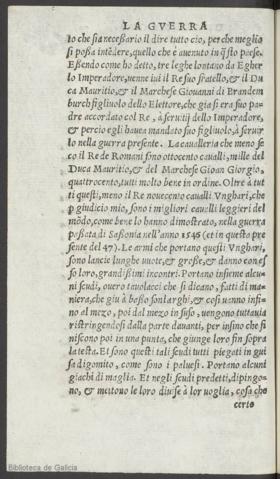 LA GVERRA
to che sia necessario il dire tutto cio, per che meglio
si possa intēdere, quello che è auenuto in q̃sto paese.
Essendo come ho detto, tre leghe lontano da Egher
lo Imperadore, venne iui il Re suo fratello, & il Du
ca Mauritio, & il Marchese Giouanni di Brandem
burch figliuolo dello Elettore, che gia si era suo pa=
dre accordato col Re, à seruitij dello Imperadore,
& percio egli hauea mandato suo figliuolo, à seruir
lo nella guerra presente. La caualleria che meno se
co il Re de Romani sono ottocento caualli, mille del
Duca Mauritio, & del Marchese Gioan Giorgio,
quattrocento, tutti molto bene in ordine. Oltre à tut
ti questi, meno il Re nouecento caualli Vnghari, che
p giudicio mio, sono i migliori caualli leggieri del
mōdo, come bene lo hanno dimostrato, nella guerra
passata di Sassonia nell'anno 1546 (et in questa pre
sente del 47). Le armi che portano questi Vnghari,
sono lancie lunghe vuote, & grosse, & danno con es
se loro, grandissimi incontri. Portano insieme alcu=
ni scudi, ouero tauolacci che si dicano, fatti di ma=
niera, che giu à basso son larghi, & cosi vanno infi=
no al mezo, poi dal mezo in suso, vengono tuttauia
ristringendosi dalla parte dauanti, per insino che fi
niscono poi in una punta, che giunge loro fin sopra
la testa. Et sono questi tali scudi tutti piegati in gui
sa di gomito, come sono i pauesi. Portano alcuni
giachi di maglia. Et negli scudi predetti, dipingo=
no, & mettono le loro diuise à lor voglia, cosa che
certo
Biblioteca de Galicia